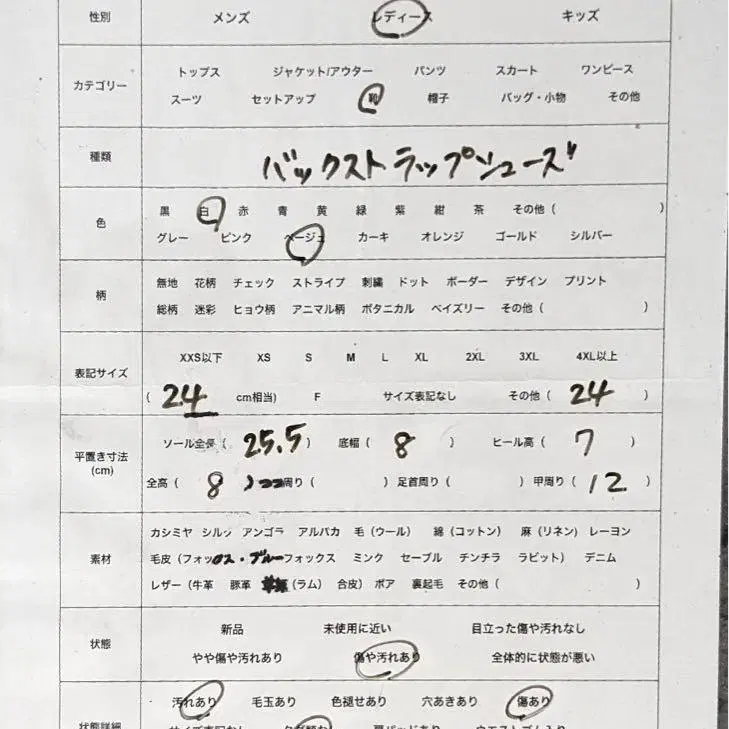 性別 メンズ レディース キッズ
カテゴリー
トップス ジャケット/アウター パンツ スカート ワンピース
スーツ セットアップ 靴 帽子 バッグ・小物 その他
種類 バックストラップシューズ
色
黒 白 赤 青 黄 緑 紫 紺 茶 その他 ( )
グレー ピンク ベージュ カーキ オレンジ ゴールド シルバー
柄
無地 花柄 チェック ストライプ 刺繍 ドット ボーダー デザイン プリント
総柄 迷彩 ヒョウ柄 アニマル柄 ボタニカル ペイズリー その他 ( )
表記サイズ
XXS以下 XS S M L XL 2XL 3XL 4XL以上
( 24 cm相当) F サイズ表記なし その他 ( 24 )
平置き寸法
(cm)
ソール全長 ( 25.5 ) 底幅 ( 8 ) ヒール高 ( 7 )
全高 ( 8 ) 周り ( ) 足首周り ( ) 甲周り ( 12 )
素材
カシミヤ シルク アンゴラ アルパカ 毛 (ウール) 綿 (コットン) 麻 (リネン) レーヨン
毛皮 (フォックス・ブルーフォックス ミンク セーブル チンチラ ラビット) デニム
レザー (牛革 豚革 (ラム) 合皮) ボア 裏起毛 その他 ( )
状態
新品 未使用に近い 目立った傷や汚れなし
やや傷や汚れあり 傷や汚れあり 全体的に状態が悪い
状態詳細
汚れあり 毛玉あり 色褪せあり 穴あきあり 傷あり